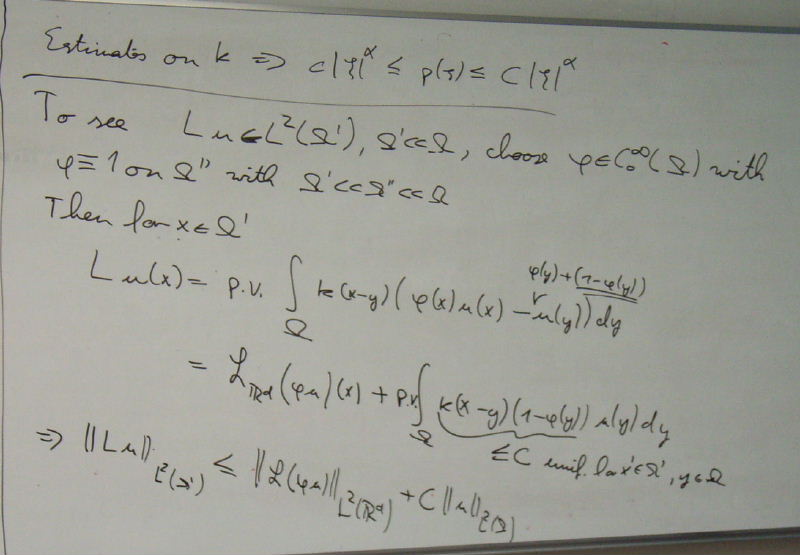 Estimates on k ⇒ c|ξ|^α ≤ p(ξ) ≤ C|ξ|^α
To see Lu∈L²(Ω'), Ω'⊂⊂Ω, choose φ∈C₀^∞(Ω) with
φ≡1 on Ω'' with Ω'⊂⊂Ω''⊂⊂Ω
Then for x∈Ω'
φ(y)+(1-φ(y))
Lu(x) = p.v. ∫_Ω k(x-y)(φ(x)u(x) - u(y))dy
= ℒ_ℝᵈ(φu)(x) + p.v.∫_Ω k(x-y)(1-φ(y))u(y)dy
≤C unif. for x'∈Ω', y∈Ω
⇒ ||Lu||_L²(Ω') ≤ ||ℒ(φu)||_L²(ℝᵈ) + C||u||_L²(Ω)